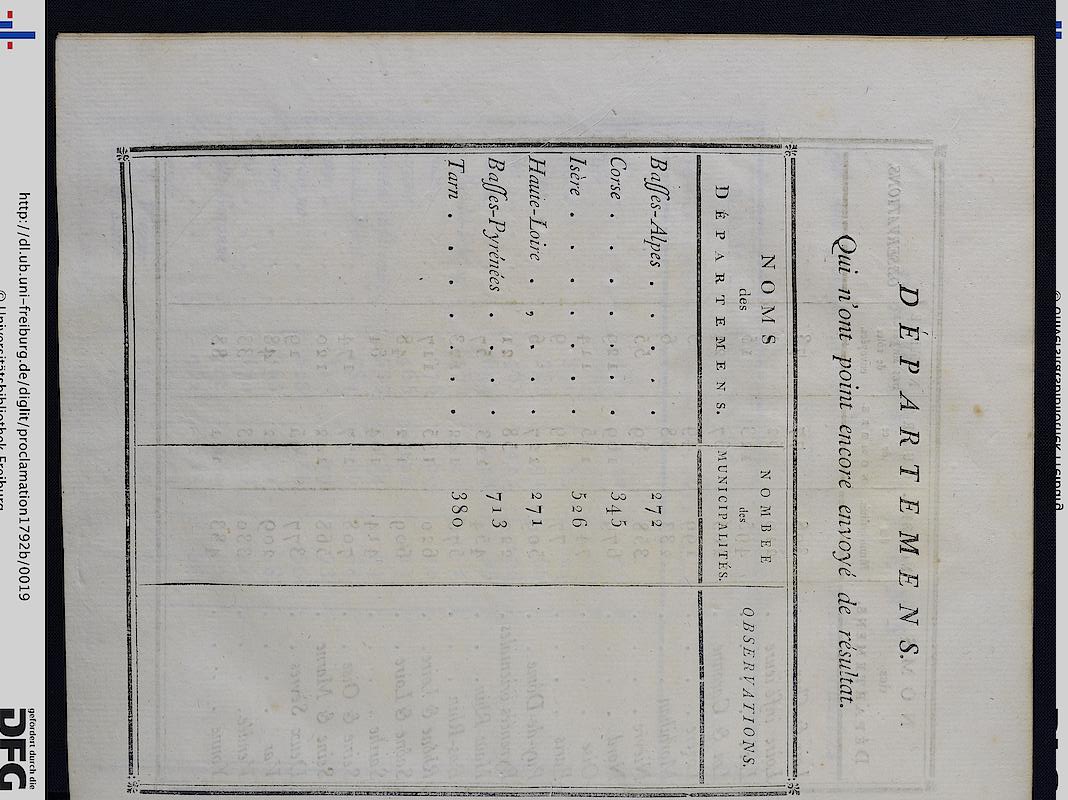 DÉPARTEMENS
Qui n'ont point encore envoyé de résultat.
NOMS des DÉPARTEMENS.
NOMBRE des MUNICIPALITÉS.
OBSERVATIONS.
Baſſes-Alpes . . . . 272
Corse . . . . . . 345
Isère . . . . . . 526
Haute-Loire . , . . . 271
Baſſes-Pyrénées . . . . 713
Tarn . . . . . . 380
http://dl.ub.uni-freiburg.de/diglit/proclamation1792b/0019
© Universitätsbibliothek Freiburg
gefördert durch die
DFG